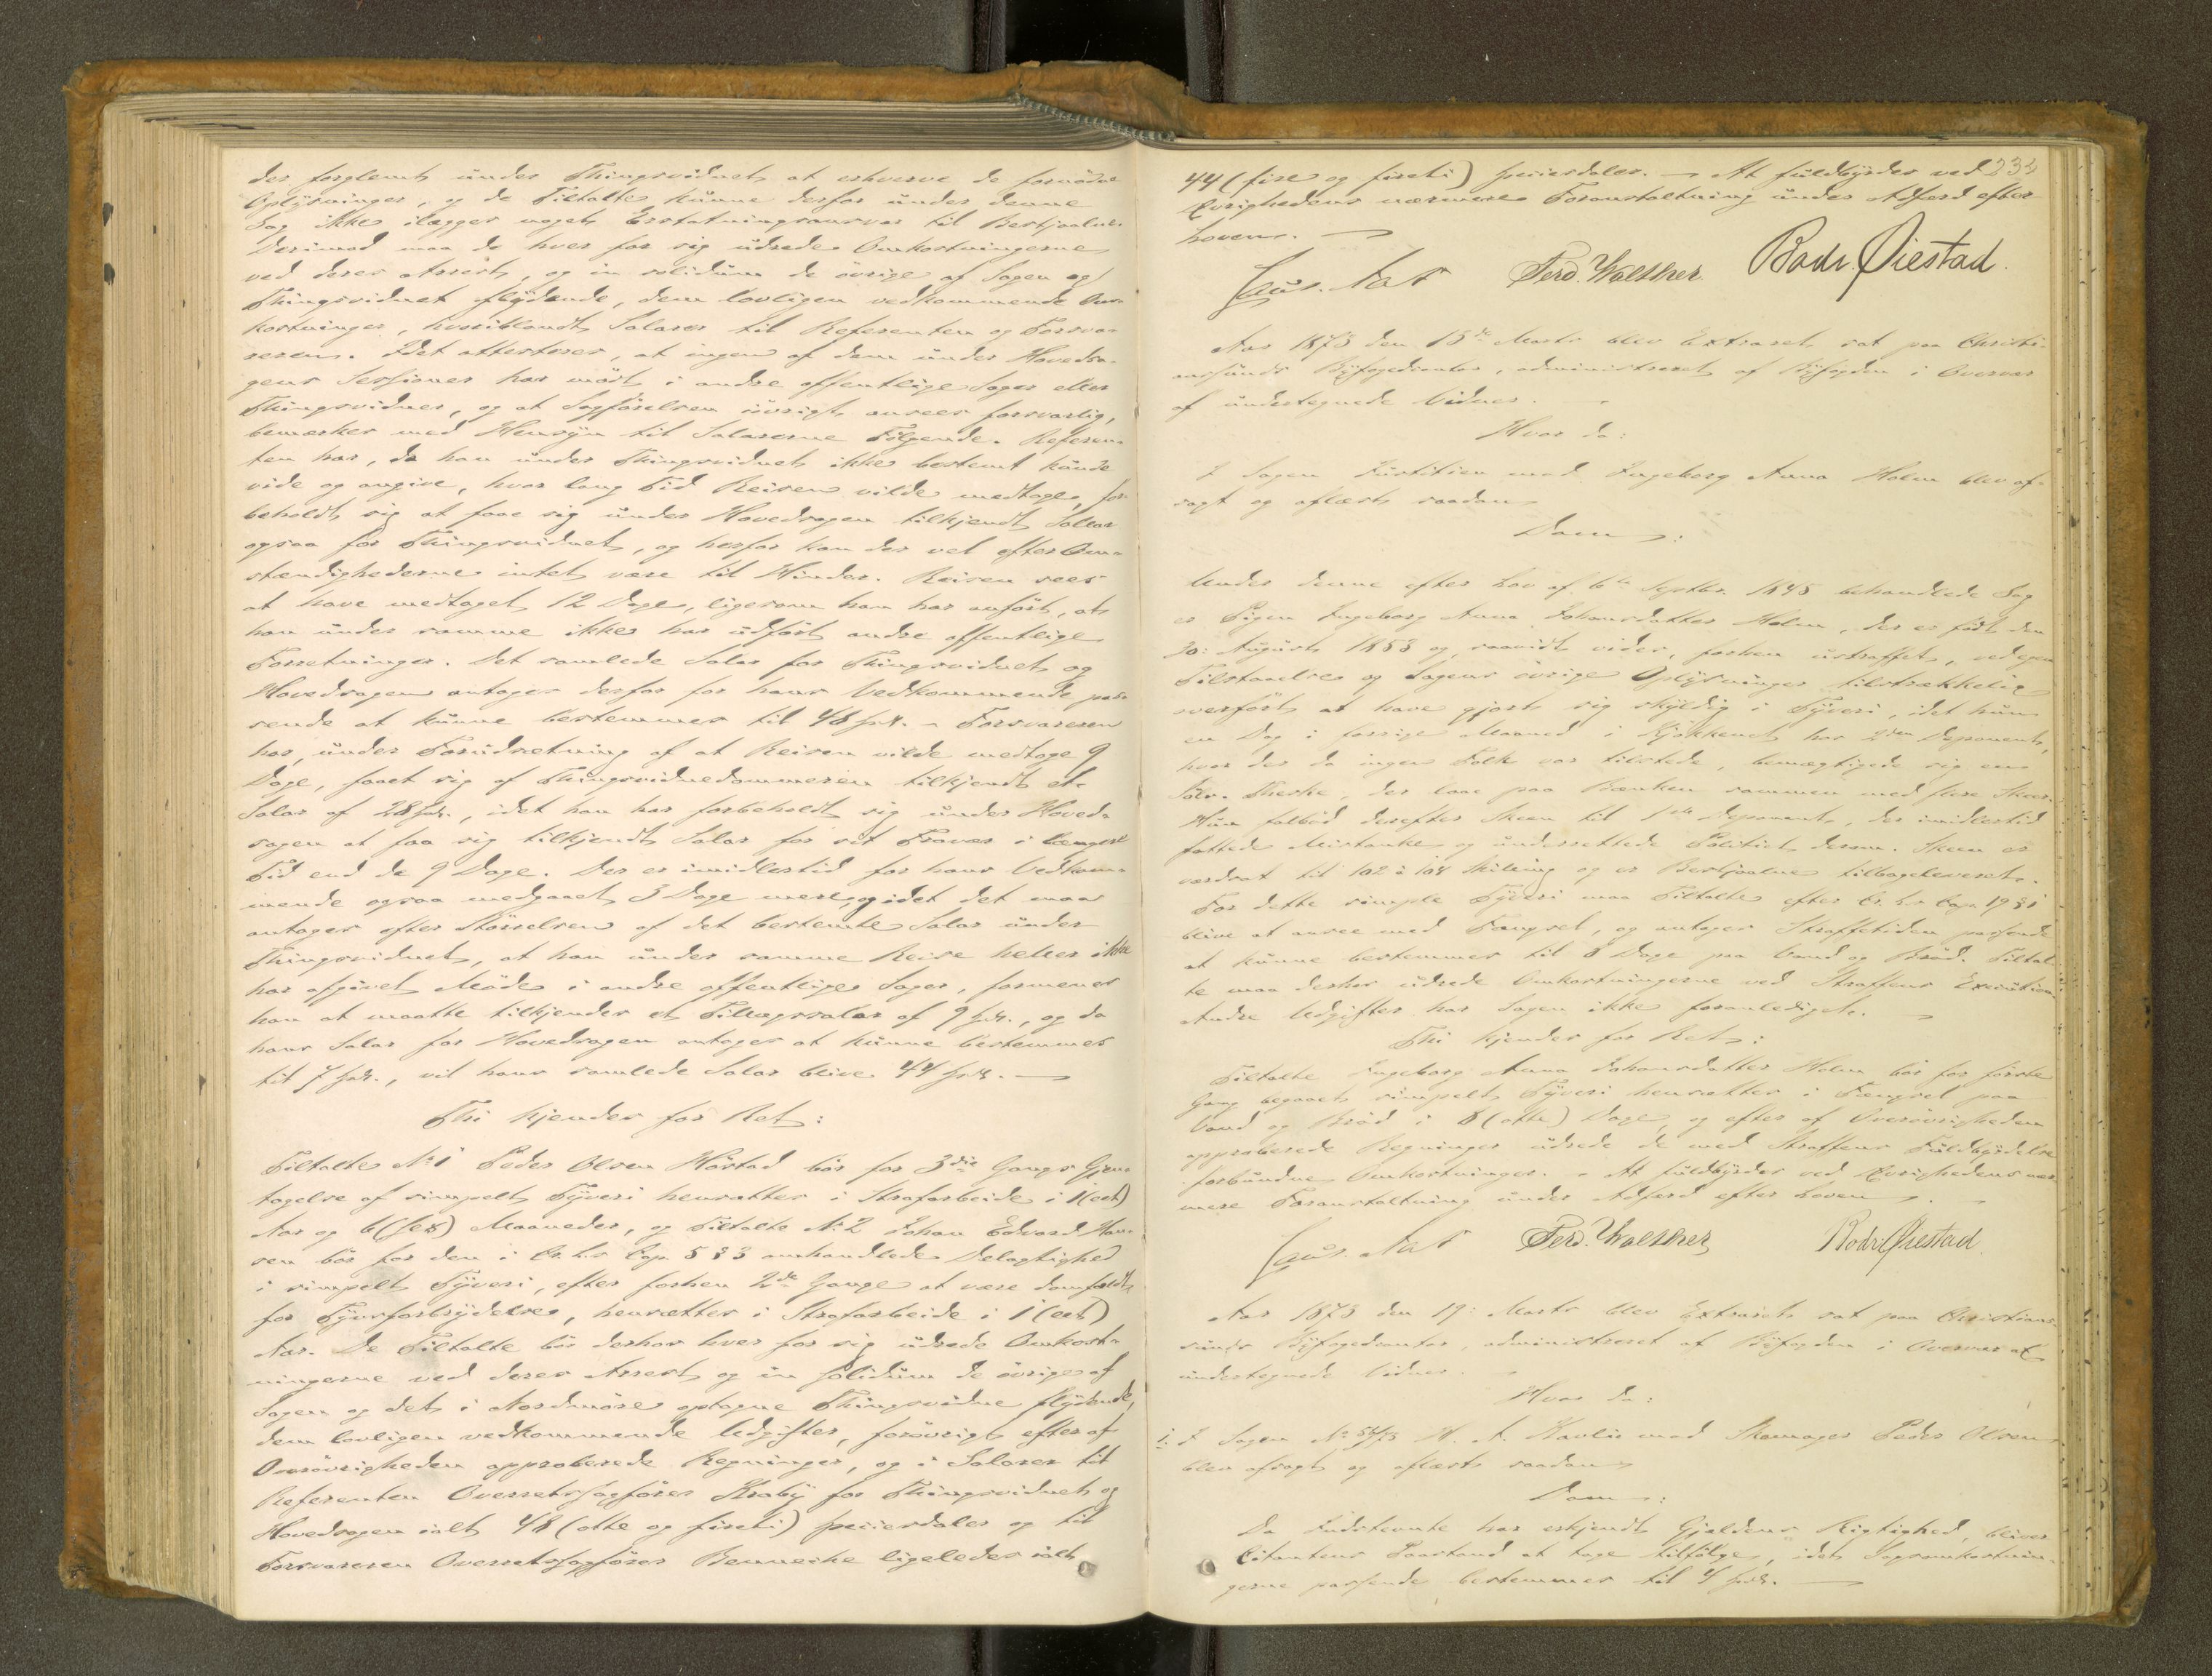 der forglemt under Thingsvidnet at erhverve de fornødne
Oplysninger, og de Tiltalte kunne derfor under denne
Sag ikke ilægges noget Erstatningsansvar til Bestjaalne.
Derimod maa de hver for sig udrede Omkostningerne
ved deres Arrest, og in solidum de øvrige af Sagen og
Thingsvidnet flydende, dem lovligen vedkommende Om-
kostninger, hvoriblandt Salarer til Referenten og Forsva-
reren. Idet attesteres, at ingen af dem under Hovedsa-
gens Sessioner har mødt i andre offentlige Sager eller
Thingsvidner, og at Sagførelsen iøvrigt ansees forsvarlig,
bemærkes med Hensyn til Salarerne Følgende. Referen-
ten har, da han under Thingsvidnet ikke bestemt kunde
vide og angive, hvor lang Tid Reisen vilde medtage, for-
beholdt sig at faae sig under Hovedsagen tilkjendt Salar
ogsaa for Thingsvidnet, og herfor kan der vel efter Om-
stændighederne intet være til Hinder. Reisen sees
at have medtaget 12 Dage, ligesom han har anført, at
han under samme ikke har udført andre offentlige
Forretninger. Det samlede Salar for Thingsvidnet og
Hovedsagen antages derfor for hans Vedkommende pas-
sende at kunne bestemmes til 48 spd. - Forsvareren
har, under Forudsætning af at Reisen vilde medtage 9
Dage, faaet sig af Thingsvidnedommeren tilkjendt et
Salar af 28 spd., idet han har forbeholdt sig under Hoved-
sagen at faa sig tilkjendt Salar for sit Fravær i længere
Tid end de 9 Dage. Der er imidlertid for hans Vedkom-
mende ogsaa medgaaet 3 Dage mere, og idet det maa
antages efter Størrelsen af det bestemte Salar under
Thingsvidnet, at han under samme Reise heller ikke
har afgivet Møde i andre offentlige Sager, formenes
han at maatte tilkjendes et Tillægssalar af 9 spd., og da
hans Salar for Hovedsagen antages at kunne bestemmes
til 7 spd., vil hans samlede Salar blive 44 spd. —
Thi kjendes for Ret:
Tiltalte No 1 Peder Olsen Hårstad bør for 3die Gangs Gjen-
tagelse af simpelt Tyveri hensættes i Strafarbeide i 1 (eet)
Aar og 6 (sex) Maaneder, og Tiltalte No 2 Johan Edvard Han-
sen bør for den i Cr. Lov Cap. 5 § 3 omhandlede Delagtighed
i simpelt Tyveri, efter forhen 2de Gange at være domfældt
for Tyvsforbrydelse, hensættes i Strafarbeide i 1 (eet)
Aar. De Tiltalte bør derhos hver for sig udrede Omkost-
ningerne ved deres Arrest og in solidum de øvrige af
Sagen og det i Nordmøre optagne Thingsvidne flydende,
dem lovligen vedkommende Udgifter, forøvrigt efter af
Overøvrigheden approberede Regninger, og i Salarer til
Referenten Overretssagfører Kraby for Thingsvidnet og
Hovedsagen ialt 48 (otte og firti) speciesdaler og til
Forsvareren Overretssagfører Bennecke ligeledes ialt
232
44 (fire og firti) speciesdaler. — At fuldbyrdes ved
Øvrighedens nærmere Foranstaltning under Adfærd efter
Loven. —
Ferd. Walther. Bodv. Øiestad.
Aar 1873 den 15de Marts blev Extraret sat paa Christi-
anssunds Byfogedcontor, administreret af Byfogden i Overvær
af undertegnede Vidner. —
Hvor da:
I Sagen Justitien mod Ingeborg Anna Holm blev af-
sagt og aflæst saadan
Dom:
Under denne efter Lov af 6te Septbr. 1845 behandlede Sag
er Pigen Ingeborg Anna Johansdatter Holm, der er født den
30: August 1853 og, saavidt vides, forhen ustraffet, ved egen
Tilstaaelse og Sagens øvrige Oplysninger tilstrækkelig
overført at have gjort sig skyldig i Tyveri, idet hun
en Dag i forrige Maaned i Kjøkkenet hos 2den Deponent,
hvor der da ingen Folk var tilstede, bemægtigede sig en
Sølv-Theske, der laae paa Bænken sammen med flere Skeer.
Hun falbød derefter Skeen til 1ste Deponent, der imidlertid
fattede Mistanke og underrettede Politiet derom. Skeen er
værdsat til 102 à 108 Skilling og er Bestjaalne tilbageleveret.
For dette simple Tyveri maa Tiltalte efter Cr. Lov Cap. 19 § 1
blive at ansee med Fængsel, og antages Straffetiden passende
at kunne bestemmes til 8 Dage paa Vand og Brød. Tiltal-
te maa derhos udrede Omkostningerne ved Straffens Execution.
Andre Udgifter har Sagen ikke foranlediget. —
Thi kjendes for Ret:
Tiltalte Ingeborg Anna Johansdatter Holm bør for første
Gang begaaet simpelt Tyveri hensættes i Fængsel paa
Vand og Brød i 8 (otte) Dage, og efter af Overøvrigheden
approberede Regninger udrede de med Straffens Fuldbyrdelse
forbundne Omkostninger. - At fuldbyrdes ved Øvrighedens nær-
mere Foranstaltning under Adfærd efter Loven. —
Ferd. Walther, Bodv. Øiestad.
Aar 1873 den 19: Marts blev Extraret sat paa Christians-
sunds Byfogedcontor, administreret af Byfogden i Overvær af
undertegnede Vidner. —
Hvor da:
1: I Sagen No 54/73 H. A. Havlie mod Skomager Peder Olsen
blev afsagt og aflæst saadan
Dom:
Da Indstevnte har erkjendt Gjældens Rigtighed, bliver
Citantens Paastand at tage tilfølge, idet Sagsomkostnin-
gerne passende bestemmes til 4 spd. —